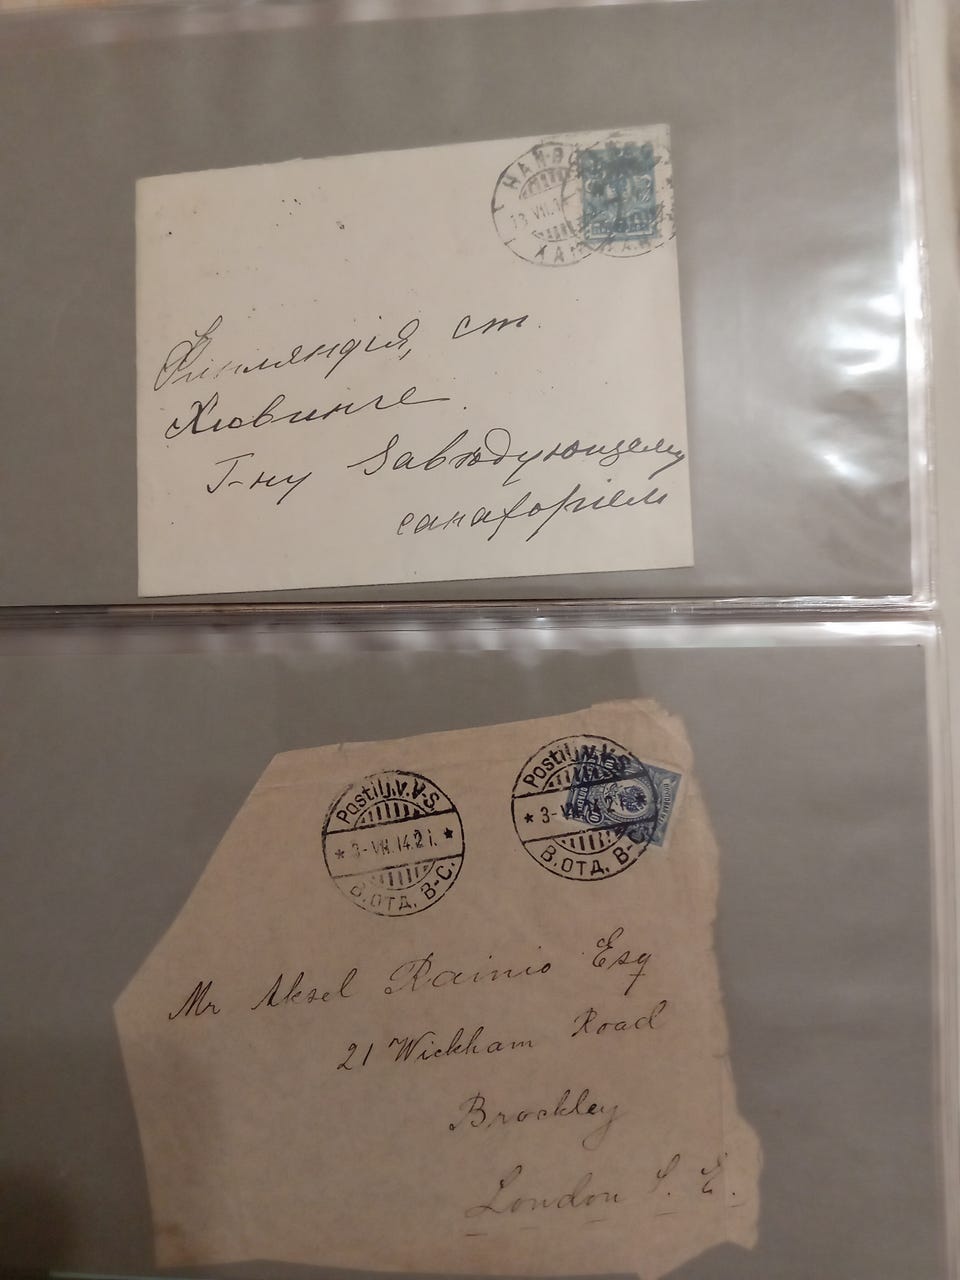 Финляндія, ст.
Хювинге
Г-ну Завѣдующему
санаторіем
Postilj.v.V-S.
3-VII.14.2 I.
В.ОТД. В-С.
Postilj.v.V-S.
3-VII.14.2 I.
В.ОТД. В-С.
Mr Aksel Rainio Esq
21 Wickham Road
Brockley
London S. E.